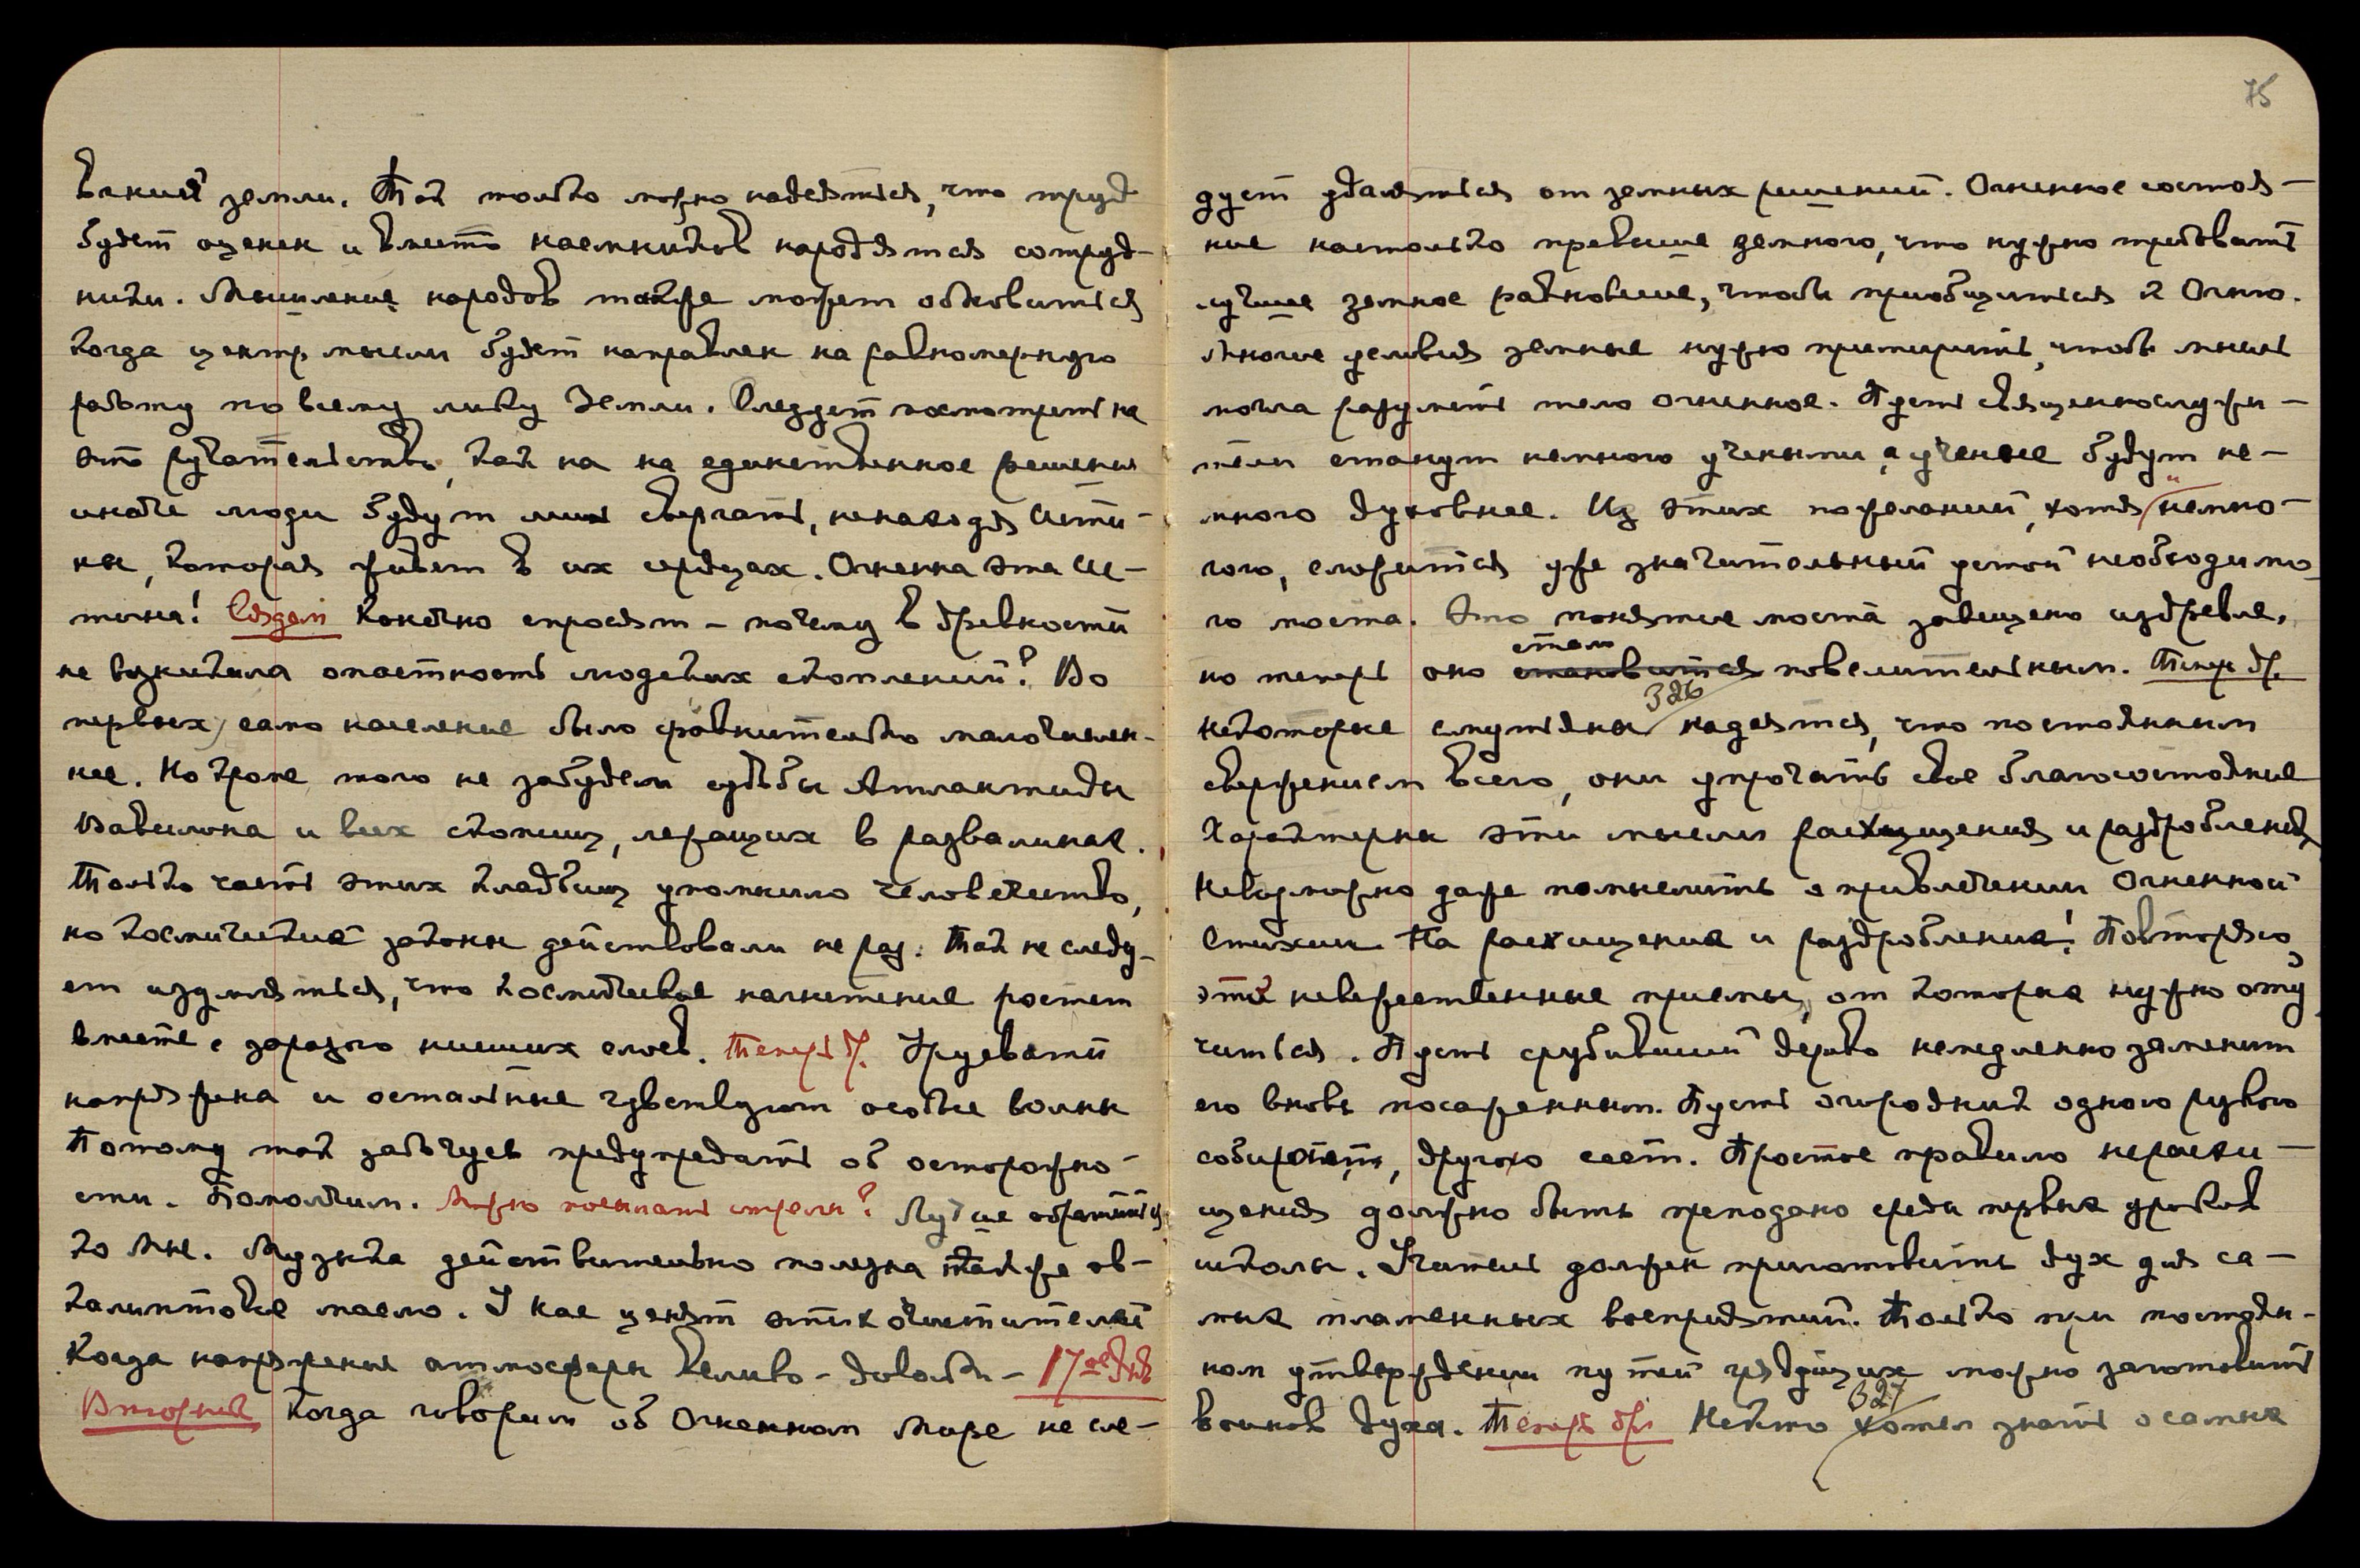 всякий земли. Так только можно надеяться, что труд
будет оценен и вместо наемников народятся сотруд-
ники. Мышление народов также может обновиться
когда центр мысли будет направлен на равномерную
работу по всему лику Земли. Следует посмотреть на
это ручательство, как на на единственное решение
иначе люди будут лишь свергать, ненаходя Исти-
ны, которая живет в их сердцах. Огненна эта Ис-
тина! Сядем Конечно спросят – почему в древности
не возникала опастность людских скоплений? Во
первых, само население было сравнительно малочислен-
ное. Но кроме того не забудем судьбы Атлантиды
Вавилона и всех столиц, лежащих в развалинах.
Только часть этих кладбищ упомнило человечество,
но космические законы действовали не раз. Так не следу-
ет изумляться, что космическое нагнетение растет
вместе с заразою низших слоев. Теперь др. Урусвати
напряжена и остальные чувствуют особые волны
Потому так забочусь предупредить об осторожно-
сти. Помолчим. Можно посылать стрелы? Лучше обратиться
ко Мне. Музыка действительно полезна также эв-
калиптовое масло. У Нас ценят этих очистителей
Когда напряжение атмосферы велико – довольно – 17ое дек
Вторник Когда говорим об Огненном Мире не сле-
75
дует удаляться от земных решений. Огненное состоя-
ние настолько превыше земного, что нужно требовать
лучшее земное равновесие, чтобы приобщиться к Огню.
Многие условия земные нужно примирить, чтобы мысль
могла разуметь тело огненное. Пусть священнослужи-
тели станут немного учеными, а ученые будут не-
много духовнее. Из этих пожеланий, хотя и немно-
гого, сложится уже значительный устой необходимо-
го моста. Это понятие моста завещано издревле,
но теперь оно становится повелительным. Теперь др.
стало
326
Некоторые смутьяны надеятся, что постоянным
свержением всего, они упрочать свое благосостояние
Характерны эти мысли расхищения и раздробления
Невозможно даже помыслить о привлечении Огненной
Стихии На расхищения и раздробления! Повторяю,
это невежественные приемы, от которых нужно оту
читься. Пусть срубивший дерево немедленно заменит
его вновь посаженным. Пусть огородник одною рукою
собирает, другою сеет. Простое правило нерасхи-
щения должно быть преподано среди первых уроков
школы. Учитель должен приготовить дух для са-
мых пламенных восприятий. Только при постоян-
ном утверждении путей грядущих можно заготовить
воинов духа. Теперь др. Некто хотел знать о самых
327